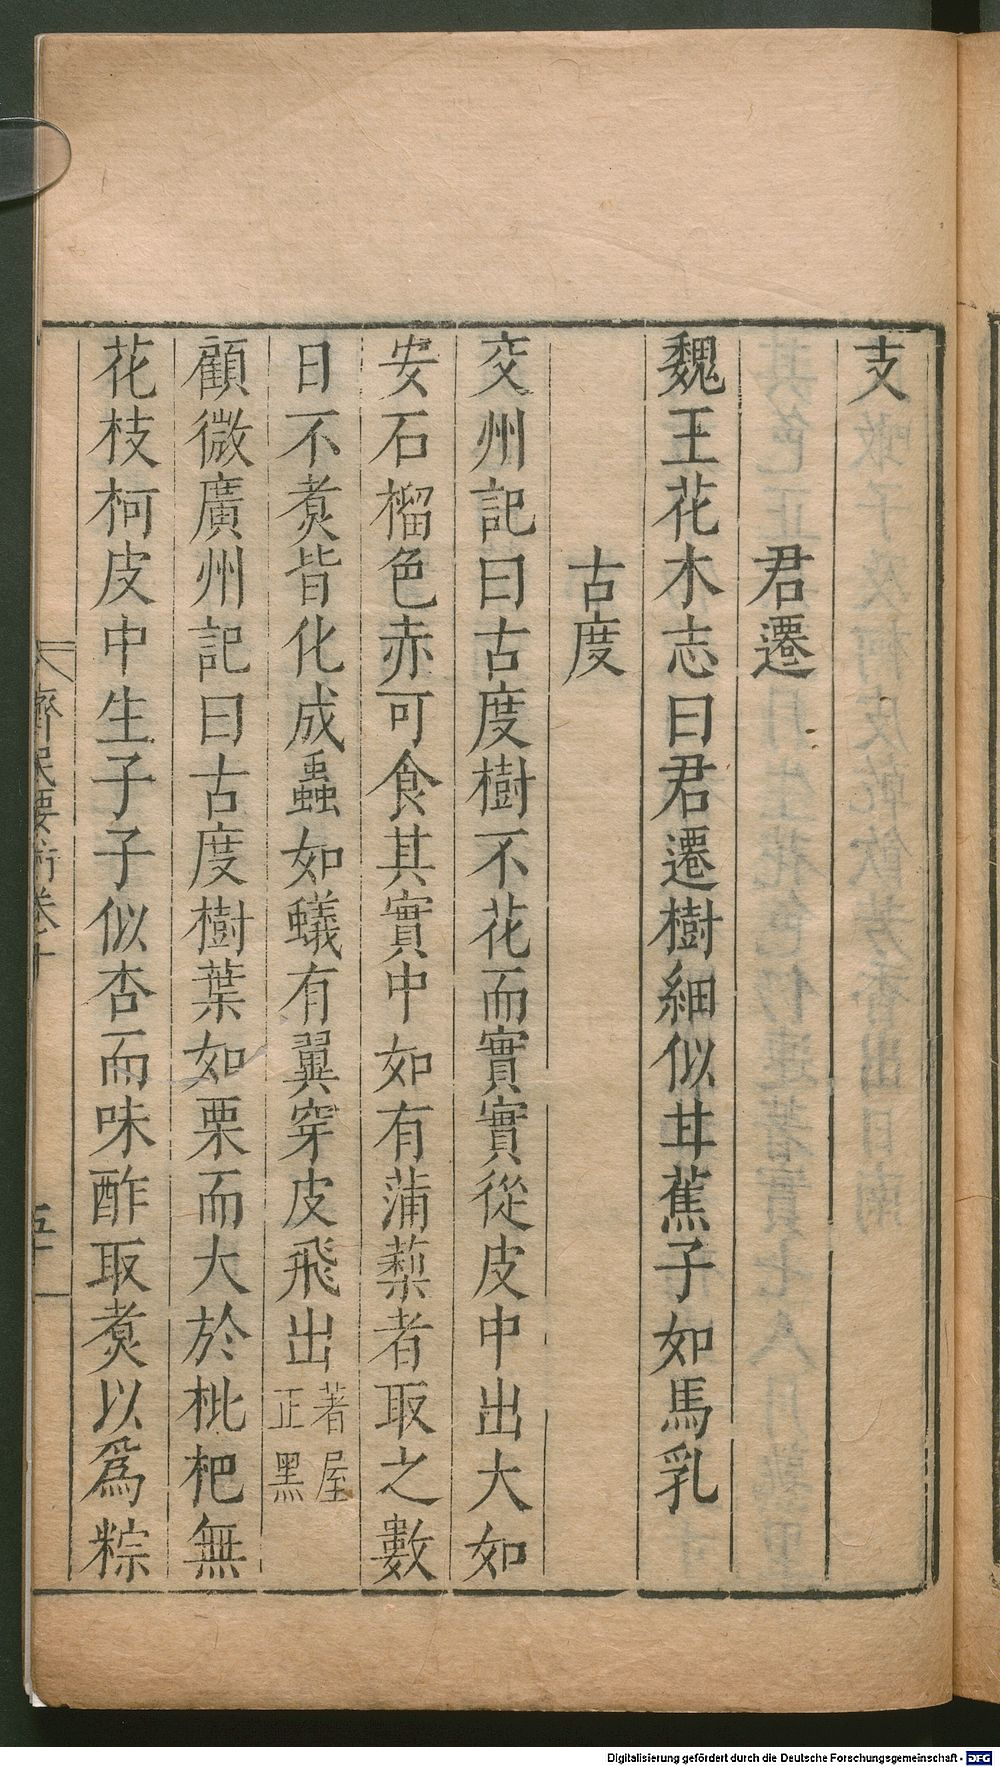 支
君遷
魏王花木志曰君遷樹細似甘蕉子如馬乳
古度
交州記曰古度樹不花而實實從皮中出大如
安石榴色赤可食其實中如有蒲蔾者取之數
日不煑皆化成蟲如蟻有翼穿皮飛出著屋正黑
顧微廣州記曰古度樹葉如栗而大於枇杷無
花枝柯皮中生子子似杏而味酢取煑以爲粽
齊民要術卷十
Digitalisierung gefördert durch die Deutsche Forschungsgemeinschaft - DFG